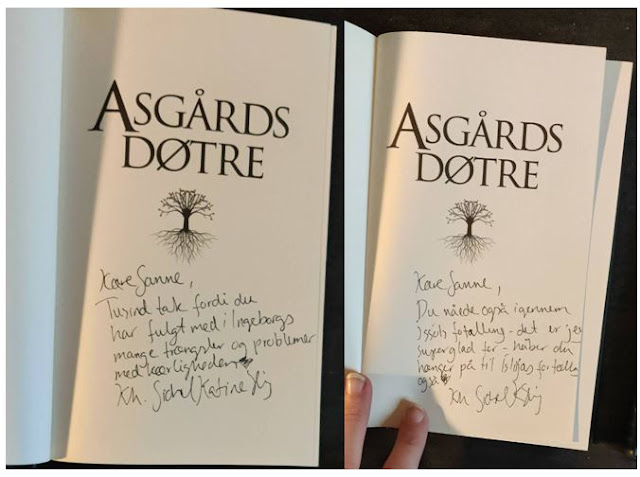 ASGÅRDS
DØTRE
Kære Sanne,
Tusind tak fordi du
har fulgt med i Ingeborgs
mange trængsler og problemer
med kærligheden
Kh. Sidsel Katrine
ASGÅRDS
DØTRE
Kære Sanne,
Du nåede også igennem
fotælling - det er jeg
superglad for - håber du
hænger på til
også
Kh. Sidsel